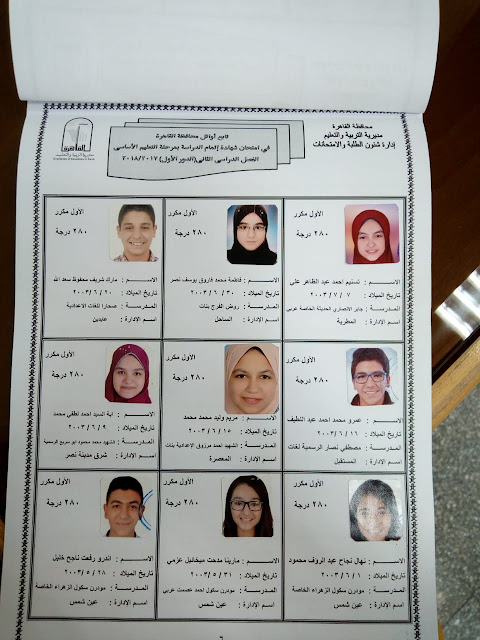 محافظة القاهرة
مديرية التربية والتعليم
إدارة شئون الطلبة والامتحانات
القاهرة
مديرية التربية والتعليم
تابع أوائل محافظة القاهرة
في امتحان شهادة إتمام الدراسة بمرحلة التعليم الأساسى
الفصل الدراسى الثانى (الدور الأول) ٢٠١٨/٢٠١٧
الأول مكرر
٢٨٠ درجة
الاســـم : تسنيم احمد عبد الظاهر على
تاريخ الميلاد : ٢٠٠٣ / ٧ / ٧
المدرســـة : جابر الانصارى الحديثة الخاصة عربى
اسم الإدارة : المطرية
الأول مكرر
٢٨٠ درجة
الاســـم : فاطمة محمد فاروق يوسف نصر
تاريخ الميلاد : ٢٠٠٣ / ٦ / ٣٠
المدرســـة : روض الفرج بنات
اسم الإدارة : الساحل
الأول مكرر
٢٨٠ درجة
الاســـم : مارك شريف محفوظ سعد الله
تاريخ الميلاد : ٢٠٠٣ / ٦ / ٢٠
المدرســـة : للغات الاعدادية
اسم الإدارة : عابدين
الأول مكرر
٢٨٠ درجة
الاســـم : عمرو محمد احمد عبد اللطيف
تاريخ الميلاد : ٢٠٠٣ / ٦ / ١٦
المدرســـة : مصطفي نصار الرسمية لغات
اسم الإدارة : المستقبل
الأول مكرر
٢٨٠ درجة
الاســـم : مريم وليد محمد محمد
تاريخ الميلاد : ٢٠٠٣ / ٦ / ١٥
المدرســـة : الشهيد احمد مرزوق الإعدادية بنات
اسم الإدارة : المعصرة
الأول مكرر
٢٨٠ درجة
الاســـم : اية السيد احمد لطفي محمد
تاريخ الميلاد : ٢٠٠٣ / ٦ / ٩
المدرســـة : شهيد محمد محمود ابو سريع الرسمية
اسم الإدارة : شرق مدينة نصر
الأول مكرر
٢٨٠ درجة
الاســـم : نهال نجاح عبد الرؤف محمود
تاريخ الميلاد : ٢٠٠٣ / ٦ / ١
المدرســـة : مودرن سكول الزهراء الخاصة
اسم الإدارة : عين شمس
الأول مكرر
٢٨٠ درجة
الاســـم : مارينا مدحت ميخائيل عزمي
تاريخ الميلاد : ٢٠٠٣ / ٥ / ٣١
المدرســـة : مودرن سكول احمد عصمت عربي
اسم الإدارة : عين شمس
الأول مكرر
٢٨٠ درجة
الاســـم : اندرو رفعت ناجح خليل
تاريخ الميلاد : ٢٠٠٣ / ٥ / ٢٨
المدرســـة : مودرن سكول الزهراء الخاصة
اسم الإدارة : عين شمس